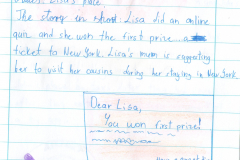 The story in short: Lisa did an online
quiz and she won the first prize...a
ticket to New York. Lisa's mum is suggesting
her to visit her cousins during her staying in New York.
Dear Lisa,
You won first prize!